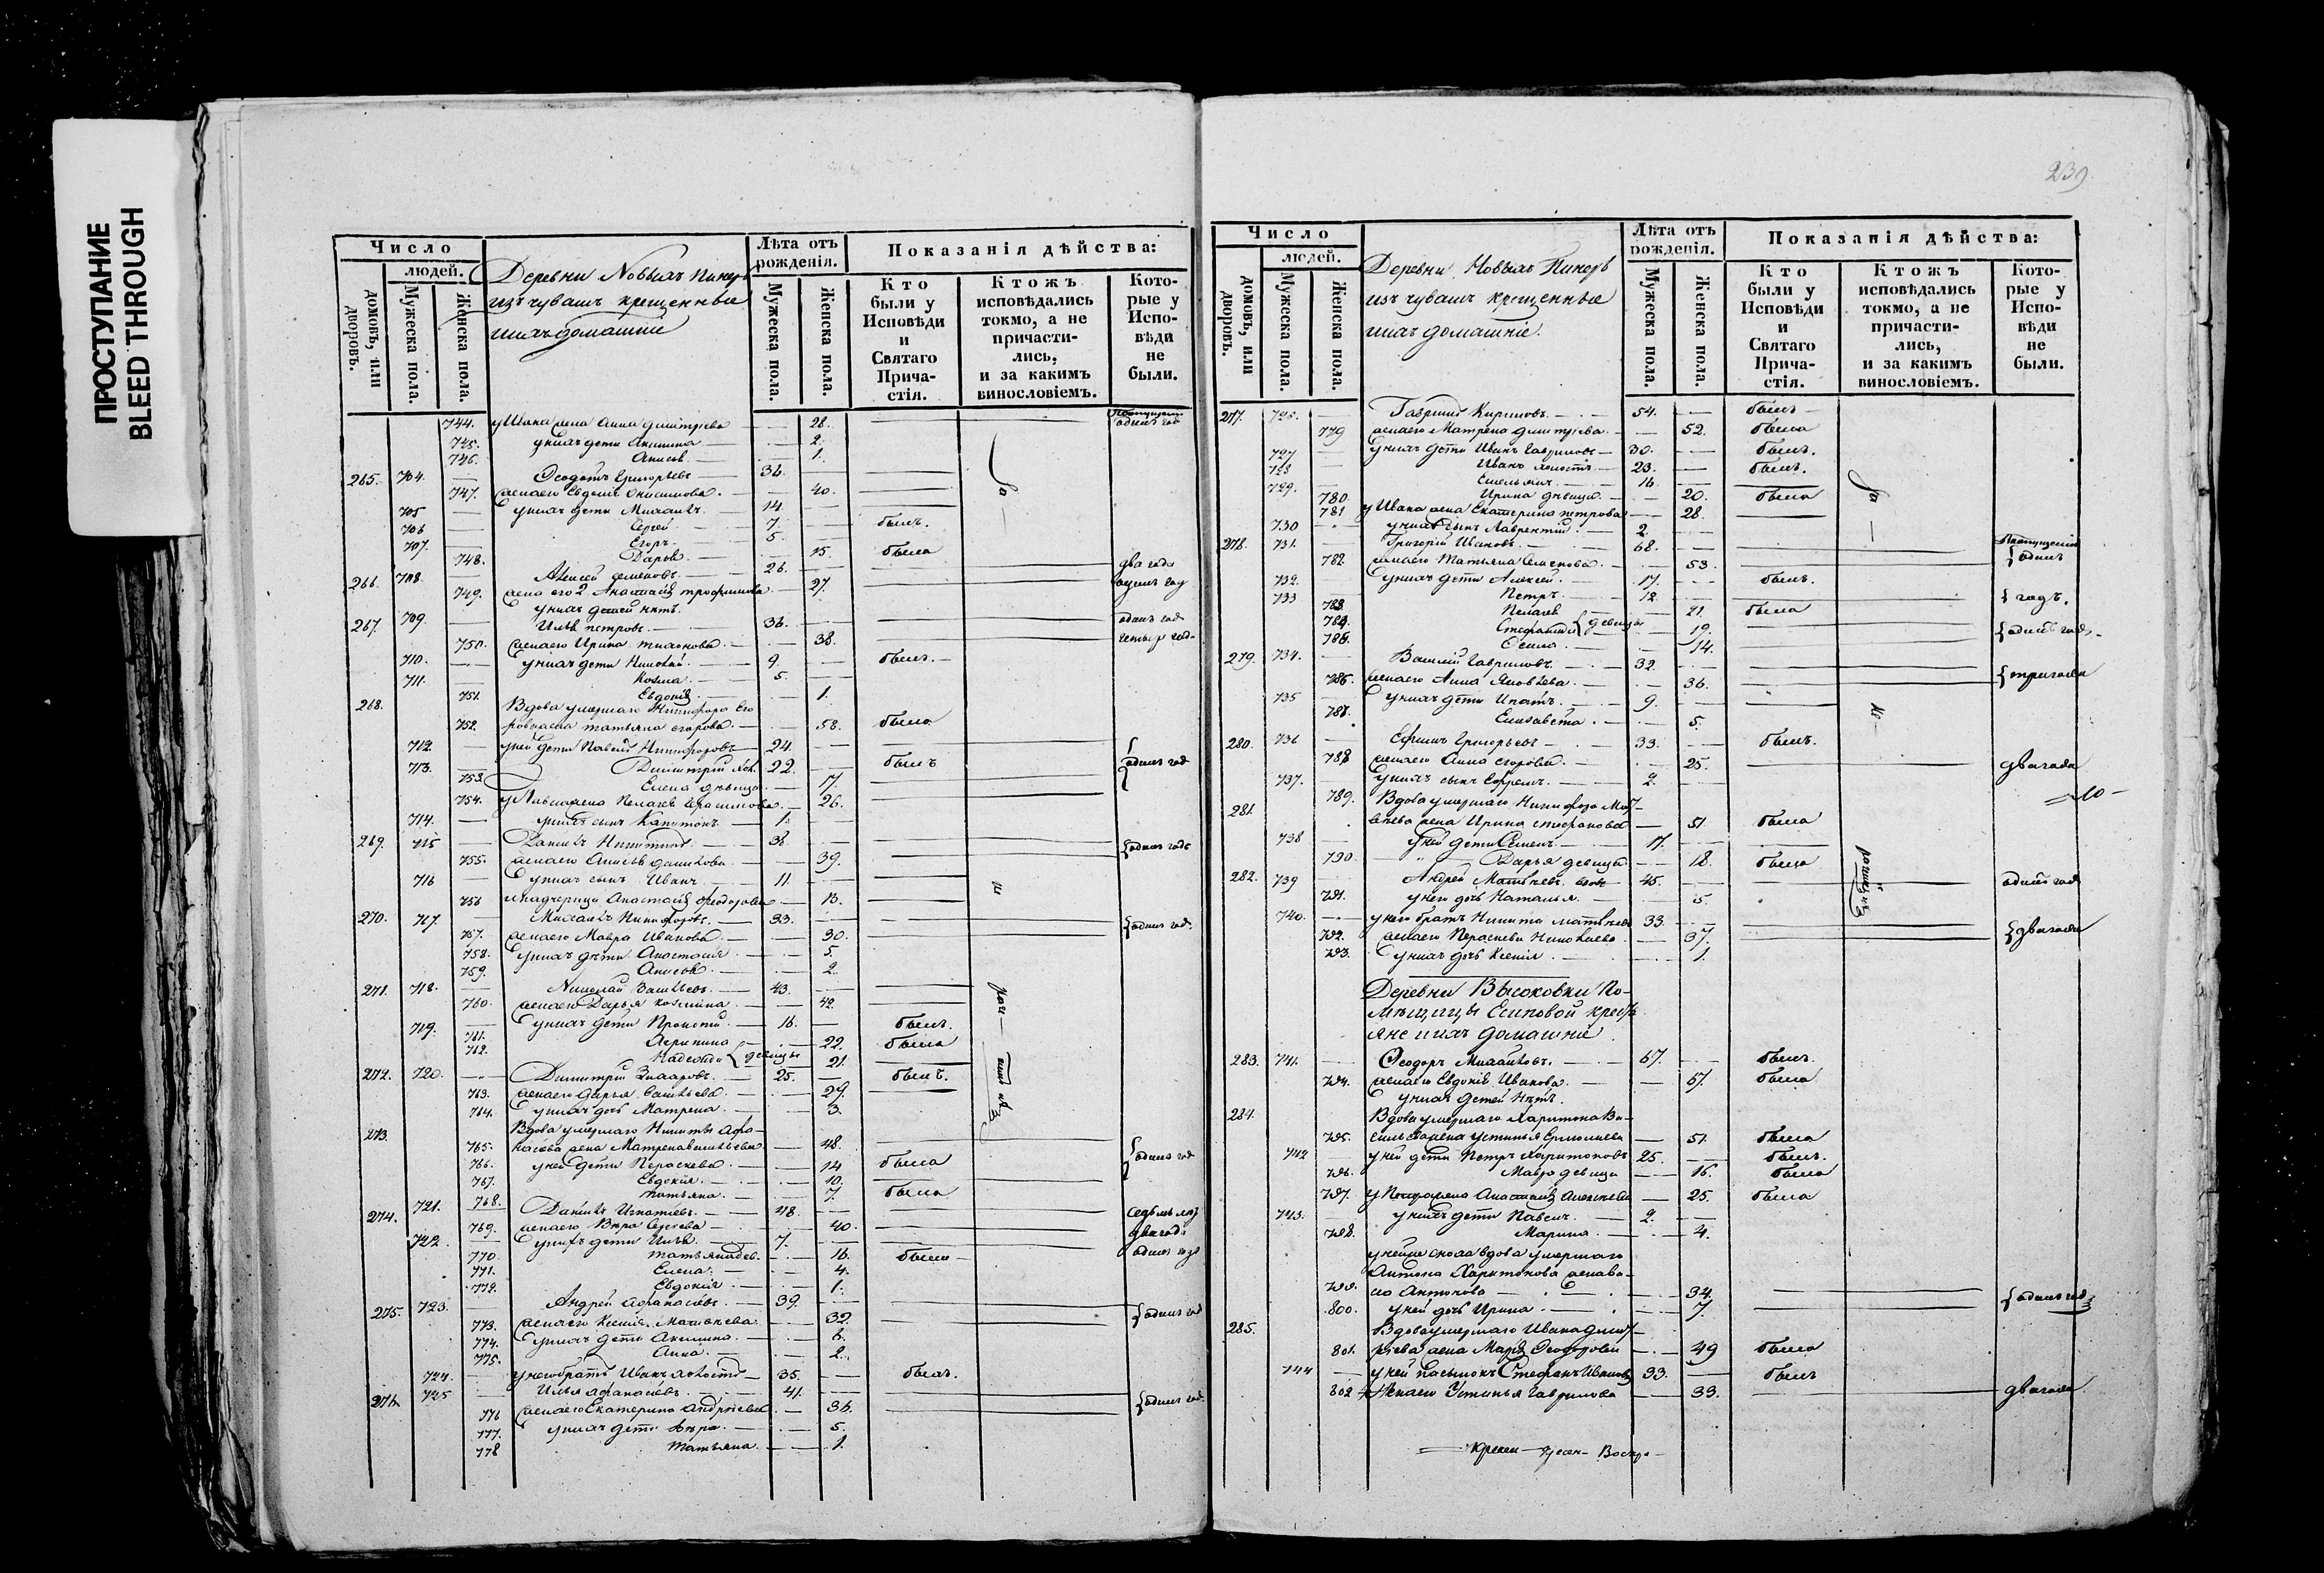 ПРОСТУПАНИЕ
BLEED THROUGH
Число
людей.
домовъ, или дворовъ.
Мужеска пола.
Женска пола.
Деревни Новыхъ Пинеръ
изъ чувашъ крещенные
и ихъ домашніе
Лѣта отъ рожденія.
Мужеска пола.
Женска пола.
Показанія дѣйства:
Кто были у Исповѣди и Святаго Причастія.
Ктожъ исповѣдались токмо, а не причастились, и за какимъ винословіемъ.
Которые у Исповѣди не были.
744. у Ивана жена Анна Дмитріева 28. одинъ год
745. у нихъ дети Акилина 2.
746. Анисья 1.
265. 704. Ѳеодотъ Григорьевъ 36.
747. жена его Евдокія Онисимова 40.
705 у нихъ дети Михаилъ 14.
706 Сергей 7. былъ.
707. Егоръ 5.
748. Дарья 15. была
266. 708. Алексей Семеновъ 26. два года
749. жена его 2. Анастасія Трофимова 27.
у нихъ детей нѣтъ.
267. 709 Илья Петровъ 36. одинъ год
750. жена его Ирина Тихонова 38.
710. у нихъ дети Николай 9. былъ.
711. Козма 5.
751. Евдокія 1.
268. Вдова умершаго Никифора Его
752. рова жена Татьяна Егорова 58. была
712. у ней дети Павелъ Никифоровъ 24.
713. Димитрій хол. 22. былъ одинъ год
753. Елена девица 17.
754. у Павла жена Пелагея Герасимова 26.
714. у нихъ сынъ Капитонъ 1.
269. 715 Данилъ Никитинъ 38 одинъ годъ
755. жена его Анисья Данилова 39.
716 у нихъ сынъ Иванъ 11.
756 и падчерица Анастасія Ѳеодорова 13.
270. 717. Михаилъ Никифоровъ 33. одинъ год.
757. жена его Мавра Иванова 30.
758. у нихъ дети Анастасія 5.
759. Анисья 2.
271. 718. Николай Васильевъ 43.
760. жена его Дарья Козмина 42.
719. у нихъ дети Прокопій 16. былъ.
761. Агрипина 22. была
762. Надежда девицы 21.
272. 720. Димитрій Захаровъ 25. былъ.
763. жена его Дарья Васильева 29.
764. у нихъ дочь Матрена 3.
273. Вдова умершаго Никиты Афа-
765. насьева жена Матрена Васильева 48.
766. у ней дети Параскева 14 была одинъ год
767. Евдокія 10.
768. Татьяна 7. была
274. 721. Данилъ Игнатьевъ 48. седмь лѣт
769. жена его Вера Сергеева 40. два года
722. у нихъ дети Илья 7. одинъ год
770. Татьяна дев. 16. была
771. Елена 4.
772. Евдокія 1.
275. 723. Андрей Афанасьевъ 39. одинъ год
773. жена его Ксенія Матвѣева 32.
774. у нихъ дети Акилина 6.
775. Анна 2.
724. у него братъ Иванъ холостъ 35. былъ.
276. 725 Илья Афанасьевъ 41. одинъ год
776 жена его Екатерина Андреева 36.
777. у нихъ дети Вера 5.
778 Татьяна 1.
239.
Число
людей.
домовъ, или дворовъ.
Мужеска пола.
Женска пола.
Деревни Новыхъ Пинеръ
изъ чувашъ крещенные
и ихъ домашніе.
Лѣта отъ рожденія.
Мужеска пола.
Женска пола.
Показанія дѣйства:
Кто были у Исповѣди и Святаго Причастія.
Ктожъ исповѣдались токмо, а не причастились, и за какимъ винословіемъ.
Которые у Исповѣди не были.
277. 726. Гавриилъ Кириловъ 54. былъ
779 жена его Матрена Дмитріева 52. была
727 у нихъ дети Иванъ Гавриловъ 30. былъ.
728 Иванъ холостъ 23. былъ.
729. Емельянъ 16.
780. Ирина девица 20. была
781 у Ивана жена Екатерина Петрова 28.
730 у нихъ сынъ Лаврентій 2.
278. 731. Григорій Ивановъ 68.
782. жена его Татьяна Семенова 53. одинъ
732. у нихъ дети Алексей 17. былъ.
733 Петръ 12 годъ.
783. Пелагея 21 была
784. Стефанида девицы 19. одинъ год
785. 14.
279. 734. Василій Гавриловъ 32.
786. жена его Анна Яковлева 36. три года
735 у нихъ дети Ипатъ 9.
787. Елизавета 5.
280. 736 Ефимъ Григорьевъ 33. былъ.
788 жена его Анна Егорова 25. два года
737. у нихъ сынъ Ефремъ 2.
281. 789. Вдова умершаго Никифора Мат-
вѣева жена Ирина Стефанова 51 была
738 у ней дети Семенъ 17.
790. Дарья девица 18. была
282. 739 Андрей Матвѣевъ вдовъ 45. одинъ год
791. у него дочь Наталья 5.
740. у него братъ Никита Матвѣевъ 33.
792. жена его Параскева Николаева 37. два года
793. у нихъ дочь Ксенія 1.
Деревни Высоковки По-
мѣщицы Есиповой кресть
яне и ихъ домашніе
283. 741. Ѳеодоръ Михайловъ 67. былъ.
794. жена его Евдокія Иванова 67. была
у нихъ детей нѣтъ.
284. Вдова умершаго Харитона Ва-
795. сильева жена Устинья Ермолаева 51. была
742 у ней дети Петръ Харитоновъ 25. былъ.
796. Мавра девица 16. была
797. у Петра жена Анастасія Алексеева 25. была
743. у нихъ дети Павелъ 2.
798. Марина 4.
у ней же сноха вдова умершаго
Антона Харитонова жена Ва-
799. са Антонова 34.
800. у ней дочь Ирина 7. одинъ год
285. Вдова умершаго Ивана Дмит-
801. ріева жена Марія Ѳеодорова 49 была
744 у ней пасынокъ Стефанъ Ивановъ 33. былъ
802 жена его Устинья Гаврилова 33. два года